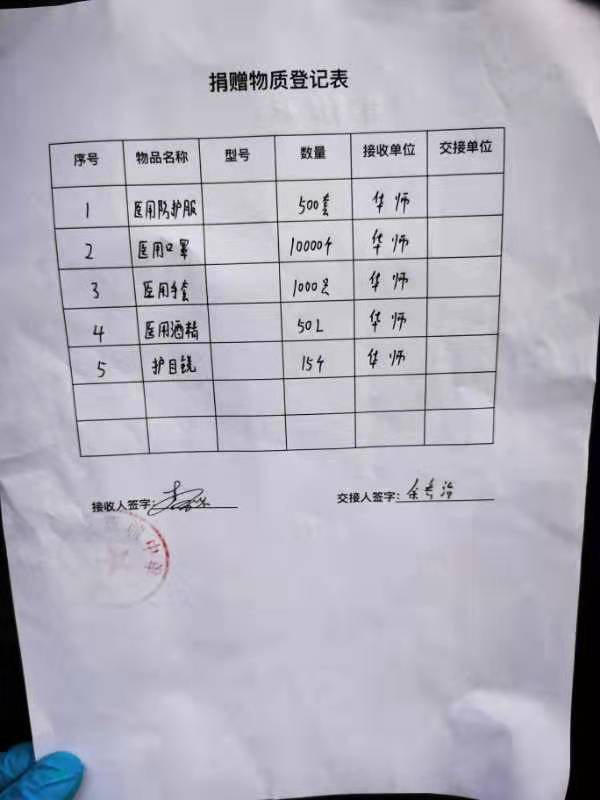 捐赠物质登记表
序号 物品名称 型号 数量 接收单位 交接单位
1 医用防护服 500套 华师
2 医用口罩 10000个 华师
3 医用手套 1000只 华师
4 医用酒精 50L 华师
5 护目镜 15个 华师
接收人签字: 交接人签字: